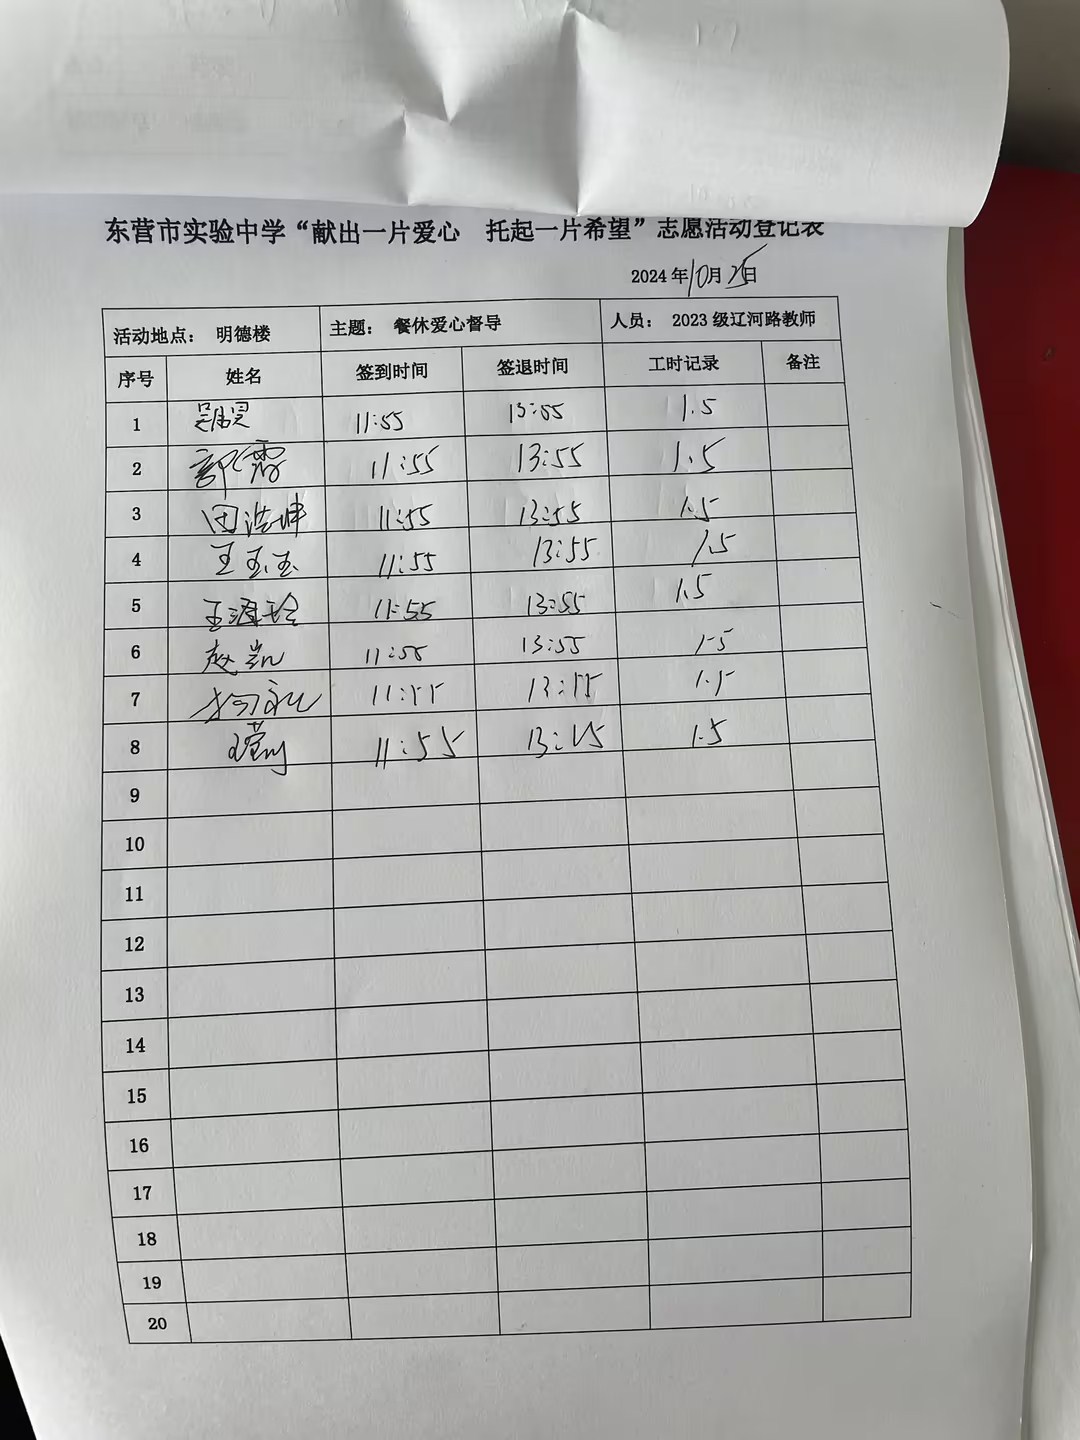 东营市实验中学“献出一片爱心 托起一片希望”志愿活动登记表
2024年10月25日
活动地点： 明德楼 主题： 餐休爱心督导 人员： 2023级辽河路教师
序号 姓名 签到时间 签退时间 工时记录 备注
1 11:55 13:55 1.5
2 郭霞 11:55 13:55 1.5
3 田浩坤 11:55 13:55 1.5
4 王玉玉 11:55 13:55 1.5
5 11:55 13:55 1.5
6 赵凯 11:55 13:55 1.5
7 11:55 13:55 1.5
8 11:55 1.5
9
10
11
12
13
14
15
16
17
18
19
20